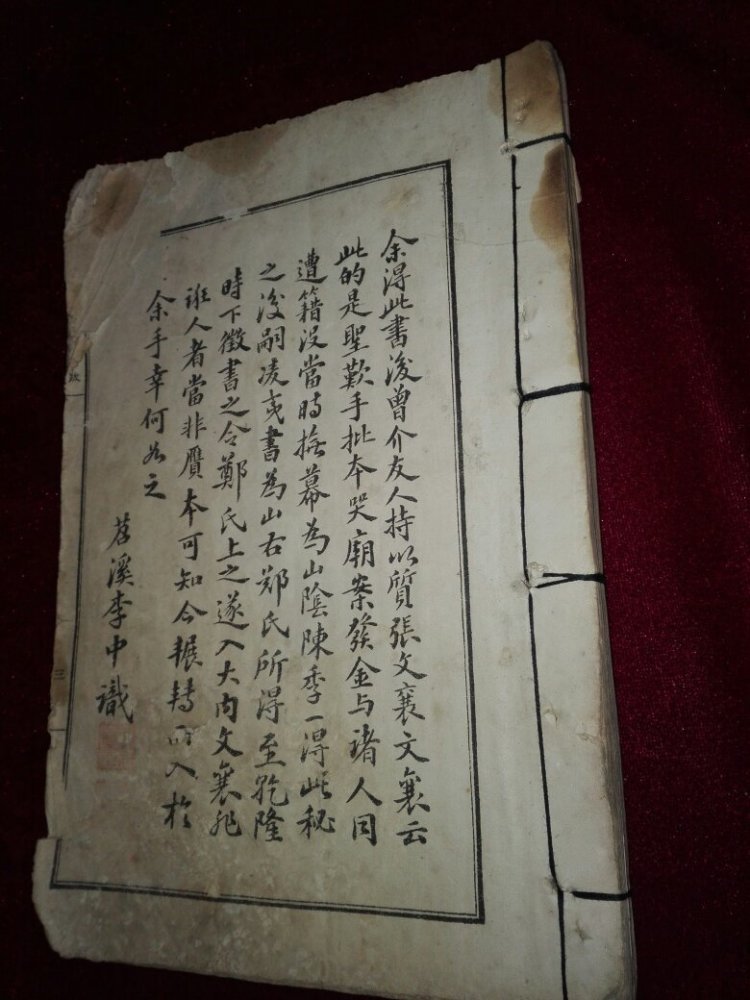 余得此書後曾介友人持以質張文襄文襄云
此的是聖歎手批本哭廟案發金与諸人同
遭籍没當時撫幕為山陰陳季一得此秘
之後嗣凌夷書為山右鄭氏所得至乾隆
時下徵書之令鄭氏上之遂入大内文襄非
誑人者當非贋本可知今輾轉而入於
余手幸何如之
苕溪李中識
跋
三